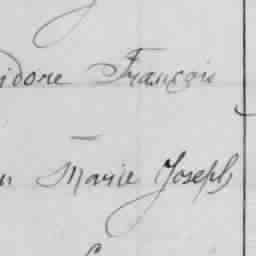 idore François
Marie Joseph